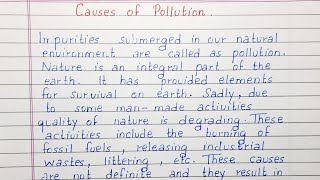 Causes of Pollution.
Impurities submerged in our natural
environment are called as pollution.
Nature is an integral part of the
earth. It has provided elements
for survival on earth. Sadly, due
to some man-made activities
quality of nature is degrading. These
activities include the burning of
fossil fuels, releasing industrial
wastes, littering, etc. These causes
are not definite and they result in